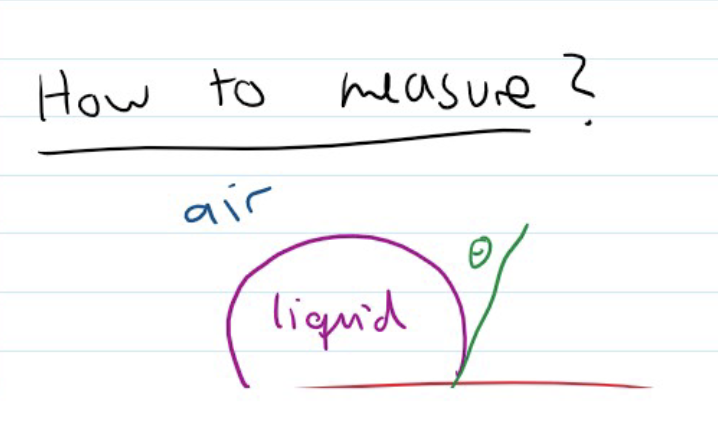 How to measure?
air
θ
liquid